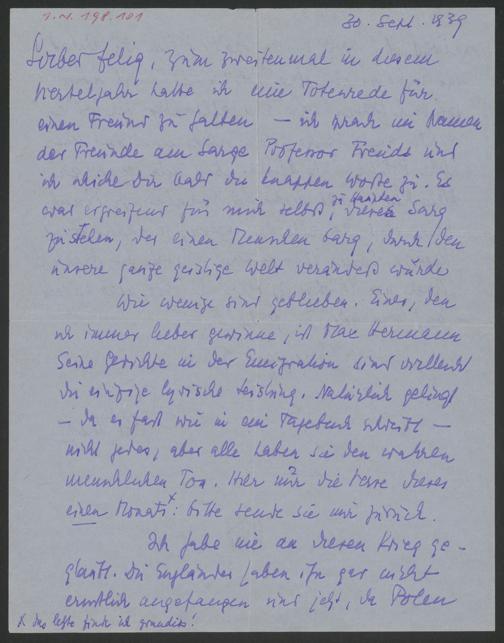 I.N. 198.101
30. Sept. 1939
Lieber Felix, zum zweitenmal in diesem
Vierteljahr hatte ich eine Totenrede für
einen Freund zu halten — ich sprach im Namen
der Freunde am Sarge Professor Freuds und
ich schicke Dir bald die knappen Worte zu. Es
war ergreifend für mich selbst, zu Häupten dieses Sarg
zu stehen, der einen Menschen barg, durch den
unsere ganze geistige Welt verändert wurde
Wie wenige sind geblieben. Einer, den
ich immer lieber gewinne, ist Max Hermann
Seine Gedichte in der Emigration sind vielleicht
die einzige lyrische Leistung. Natürlich gelingt
— da er fast wie in ein Tagebuch schreibt —
nicht jedes, aber alle haben sie den wahren
menschlichen Ton. Hier nur die Verse dieses
einen Monats x: bitte sende sie mir zurück.
Ich habe nie an diesen Krieg ge-
glaubt. Die Engländer haben ihn gar nicht
ernstlich angefangen und jetzt, da Polen
x das letzte finde ich grandios!